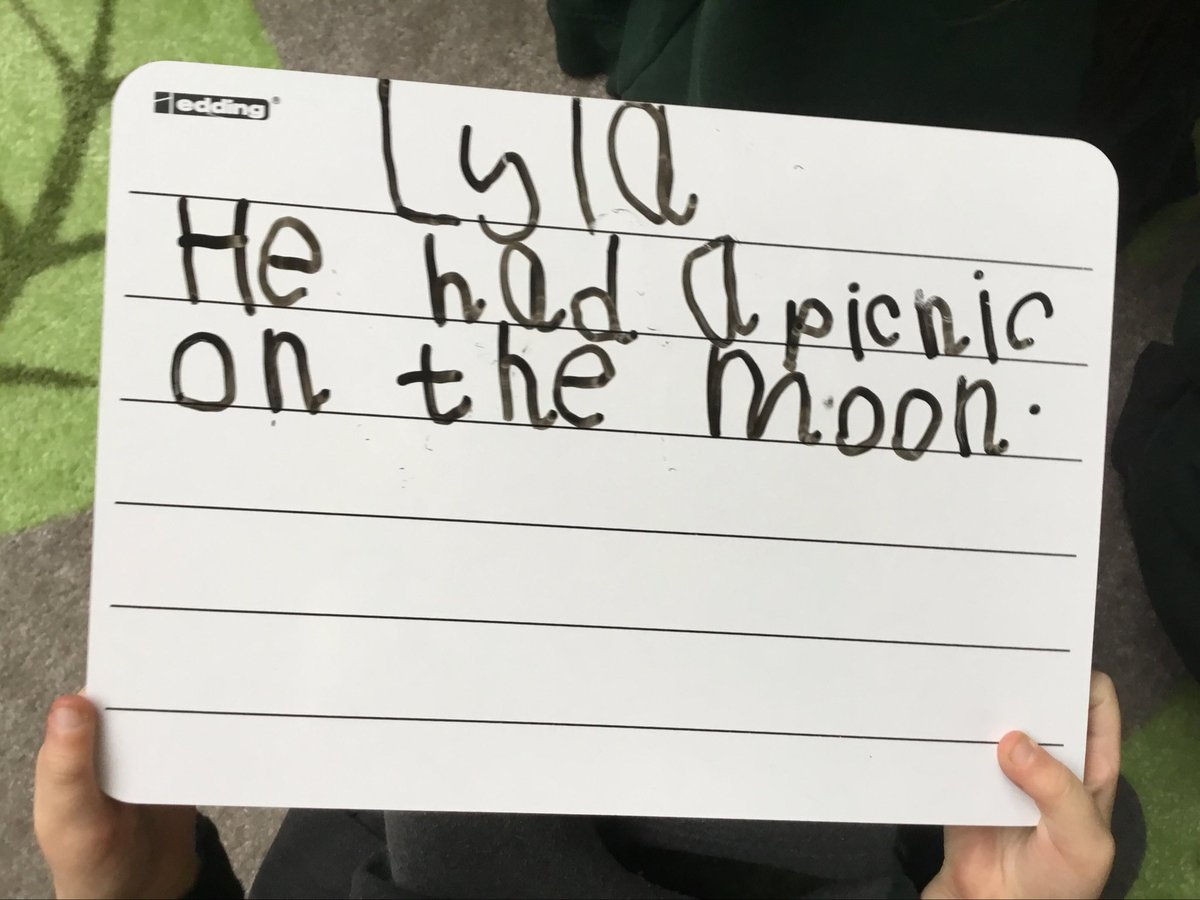 edding®
Lyla
He had a picnic
on the moon.